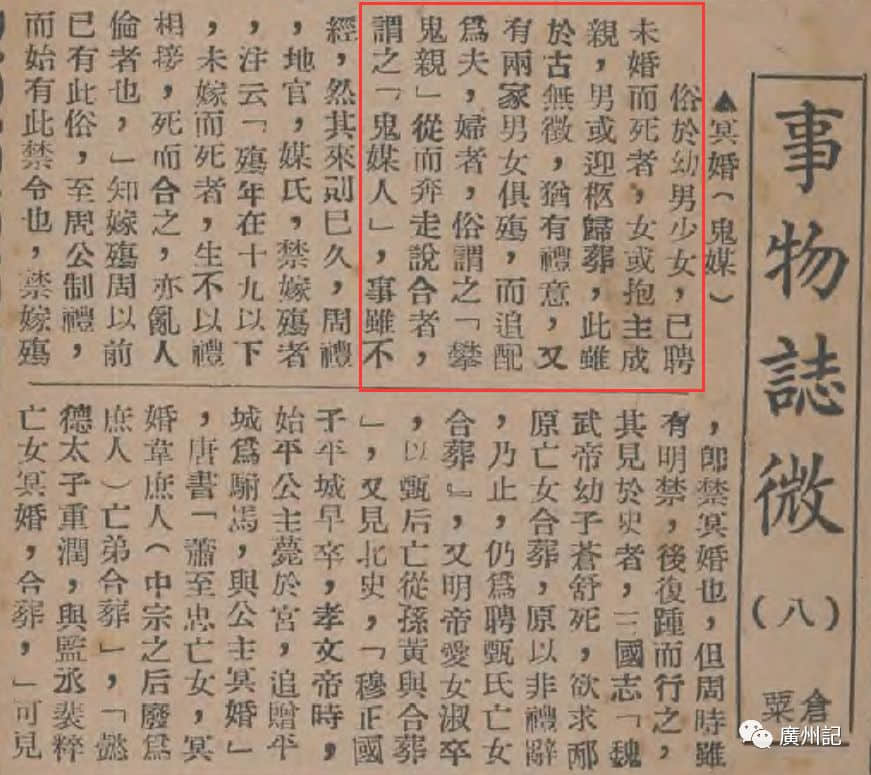 事物誌微
（八）
倉粟
▲冥婚（鬼媒）
俗於幼男少女，已聘
未婚而死者，女或抱主成
親，男或迎柩歸葬，此雖
於古無徵，猶有禮意，又
有兩家男女俱殤，而追配
爲夫，婦者，俗謂之「攀
鬼親」從而奔走說合者，
謂之「鬼媒人」，事雖不
經，然其來則已久，周禮
，地官，媒氏，禁嫁殤者
，注云「殤年在十九以下
，未嫁而死者，生不以禮
相接，死而合之，亦亂人
倫者也，」知嫁殤周以前
已有此俗，至周公制禮，
而始有此禁令也，禁嫁殤
，卽禁冥婚也，但周時雖
有明禁，後復踵而行之，
其見於史者，三國志「魏
武帝幼子蒼舒死，欲求邴
原亡女合葬，原以非禮辭
，乃止，仍爲聘甄氏亡女
合葬』，又明帝愛女淑卒
，以甄后亡從孫黃與合葬
」，又見北史，「穆正國
子平城早卒，孝文帝時，
始平公主薨於宮，追贈平
城爲駙馬，與公主冥婚」
，唐書「蕭至忠亡女，冥
婚韋庶人（中宗之后廢爲
庶人）亡弟合葬」，「懿
德太子重潤，與監丞裴粹
亡女冥婚，合葬，」可見
廣州記